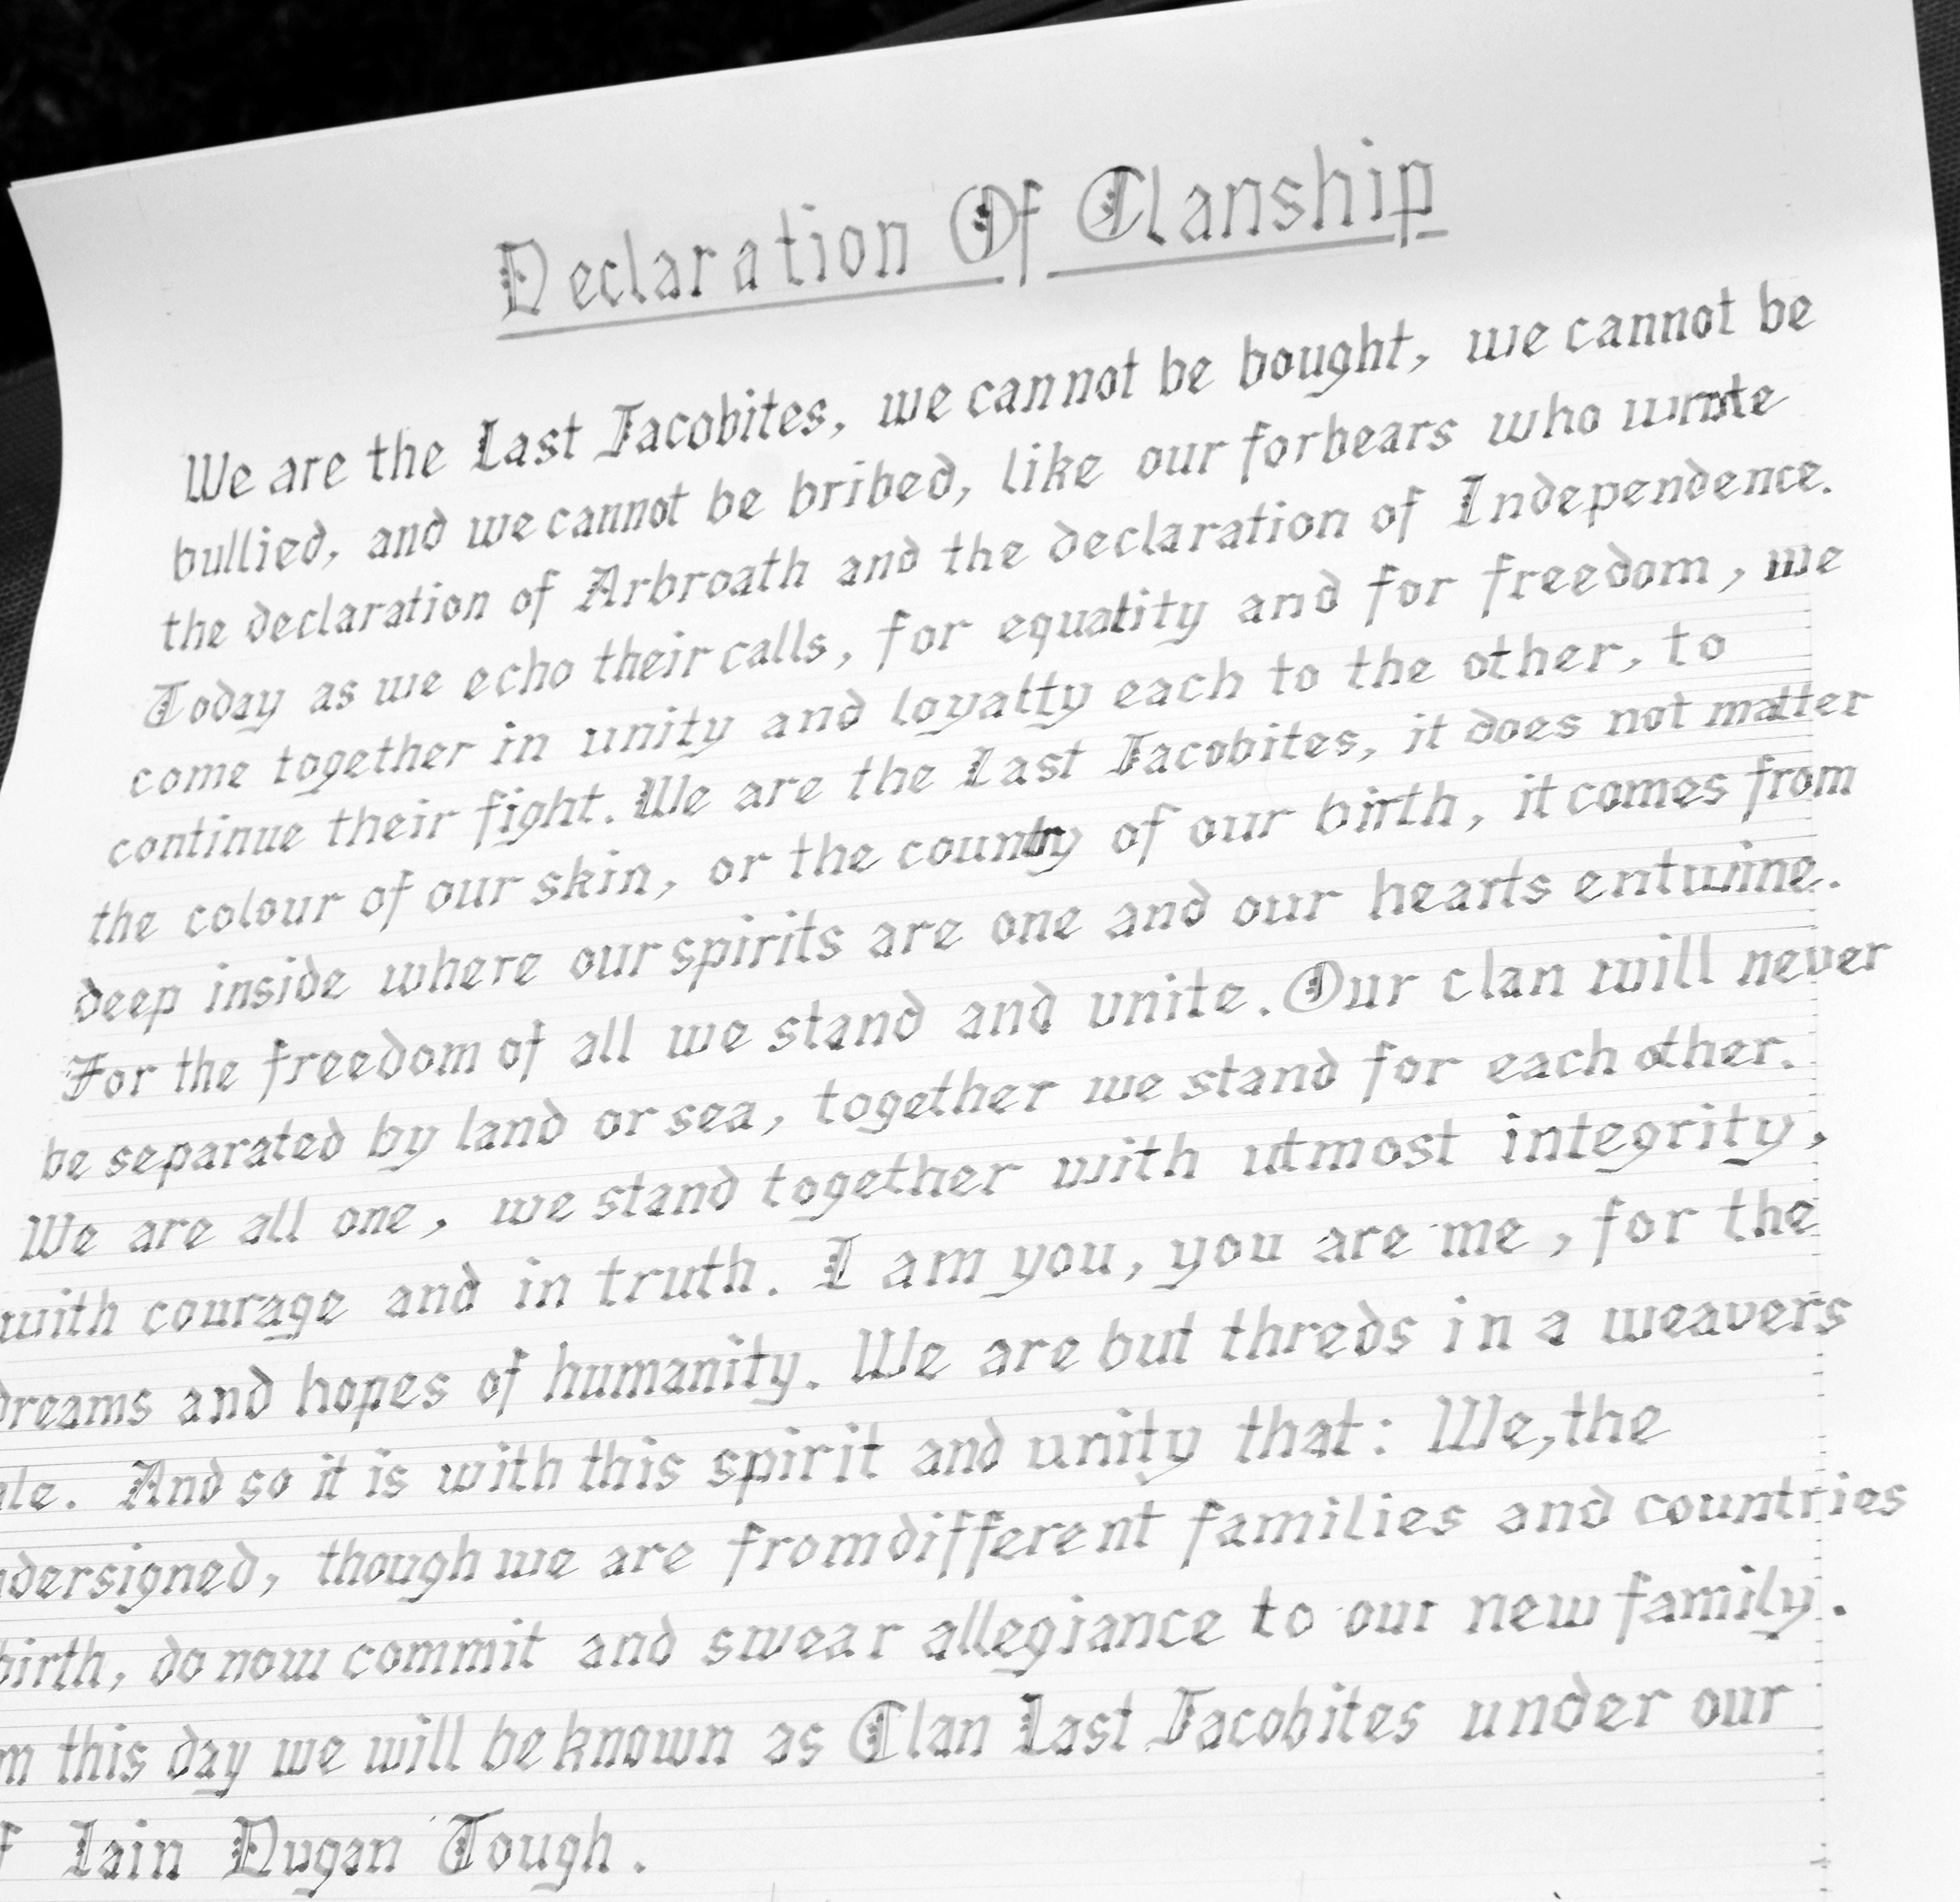 Declaration Of Clanship
We are the Last Jacobites, we cannot be bought, we cannot be
bullied, and we cannot be bribed, like our forbears who wrote
the declaration of Arbroath and the declaration of Independence.
Today as we echo their calls, for equality and for freedom, we
come together in unity and loyalty each to the other, to
continue their fight. We are the Last Jacobites, it does not matter
the colour of our skin, or the country of our birth, it comes from
deep inside where our spirits are one and our hearts entwine.
For the freedom of all we stand and unite. Our clan will never
be separated by land or sea, together we stand for each other.
We are all one, we stand together with utmost integrity,
with courage and in truth. I am you, you are me, for the
dreams and hopes of humanity. We are but threds in a weavers
And so it is with this spirit and unity that: We, the
dersigned, though we are from different families and countries
birth, do now commit and swear allegiance to our new family.
m this day we will be known as Clan Last Jacobites under our
f Iain Dugan Tough.